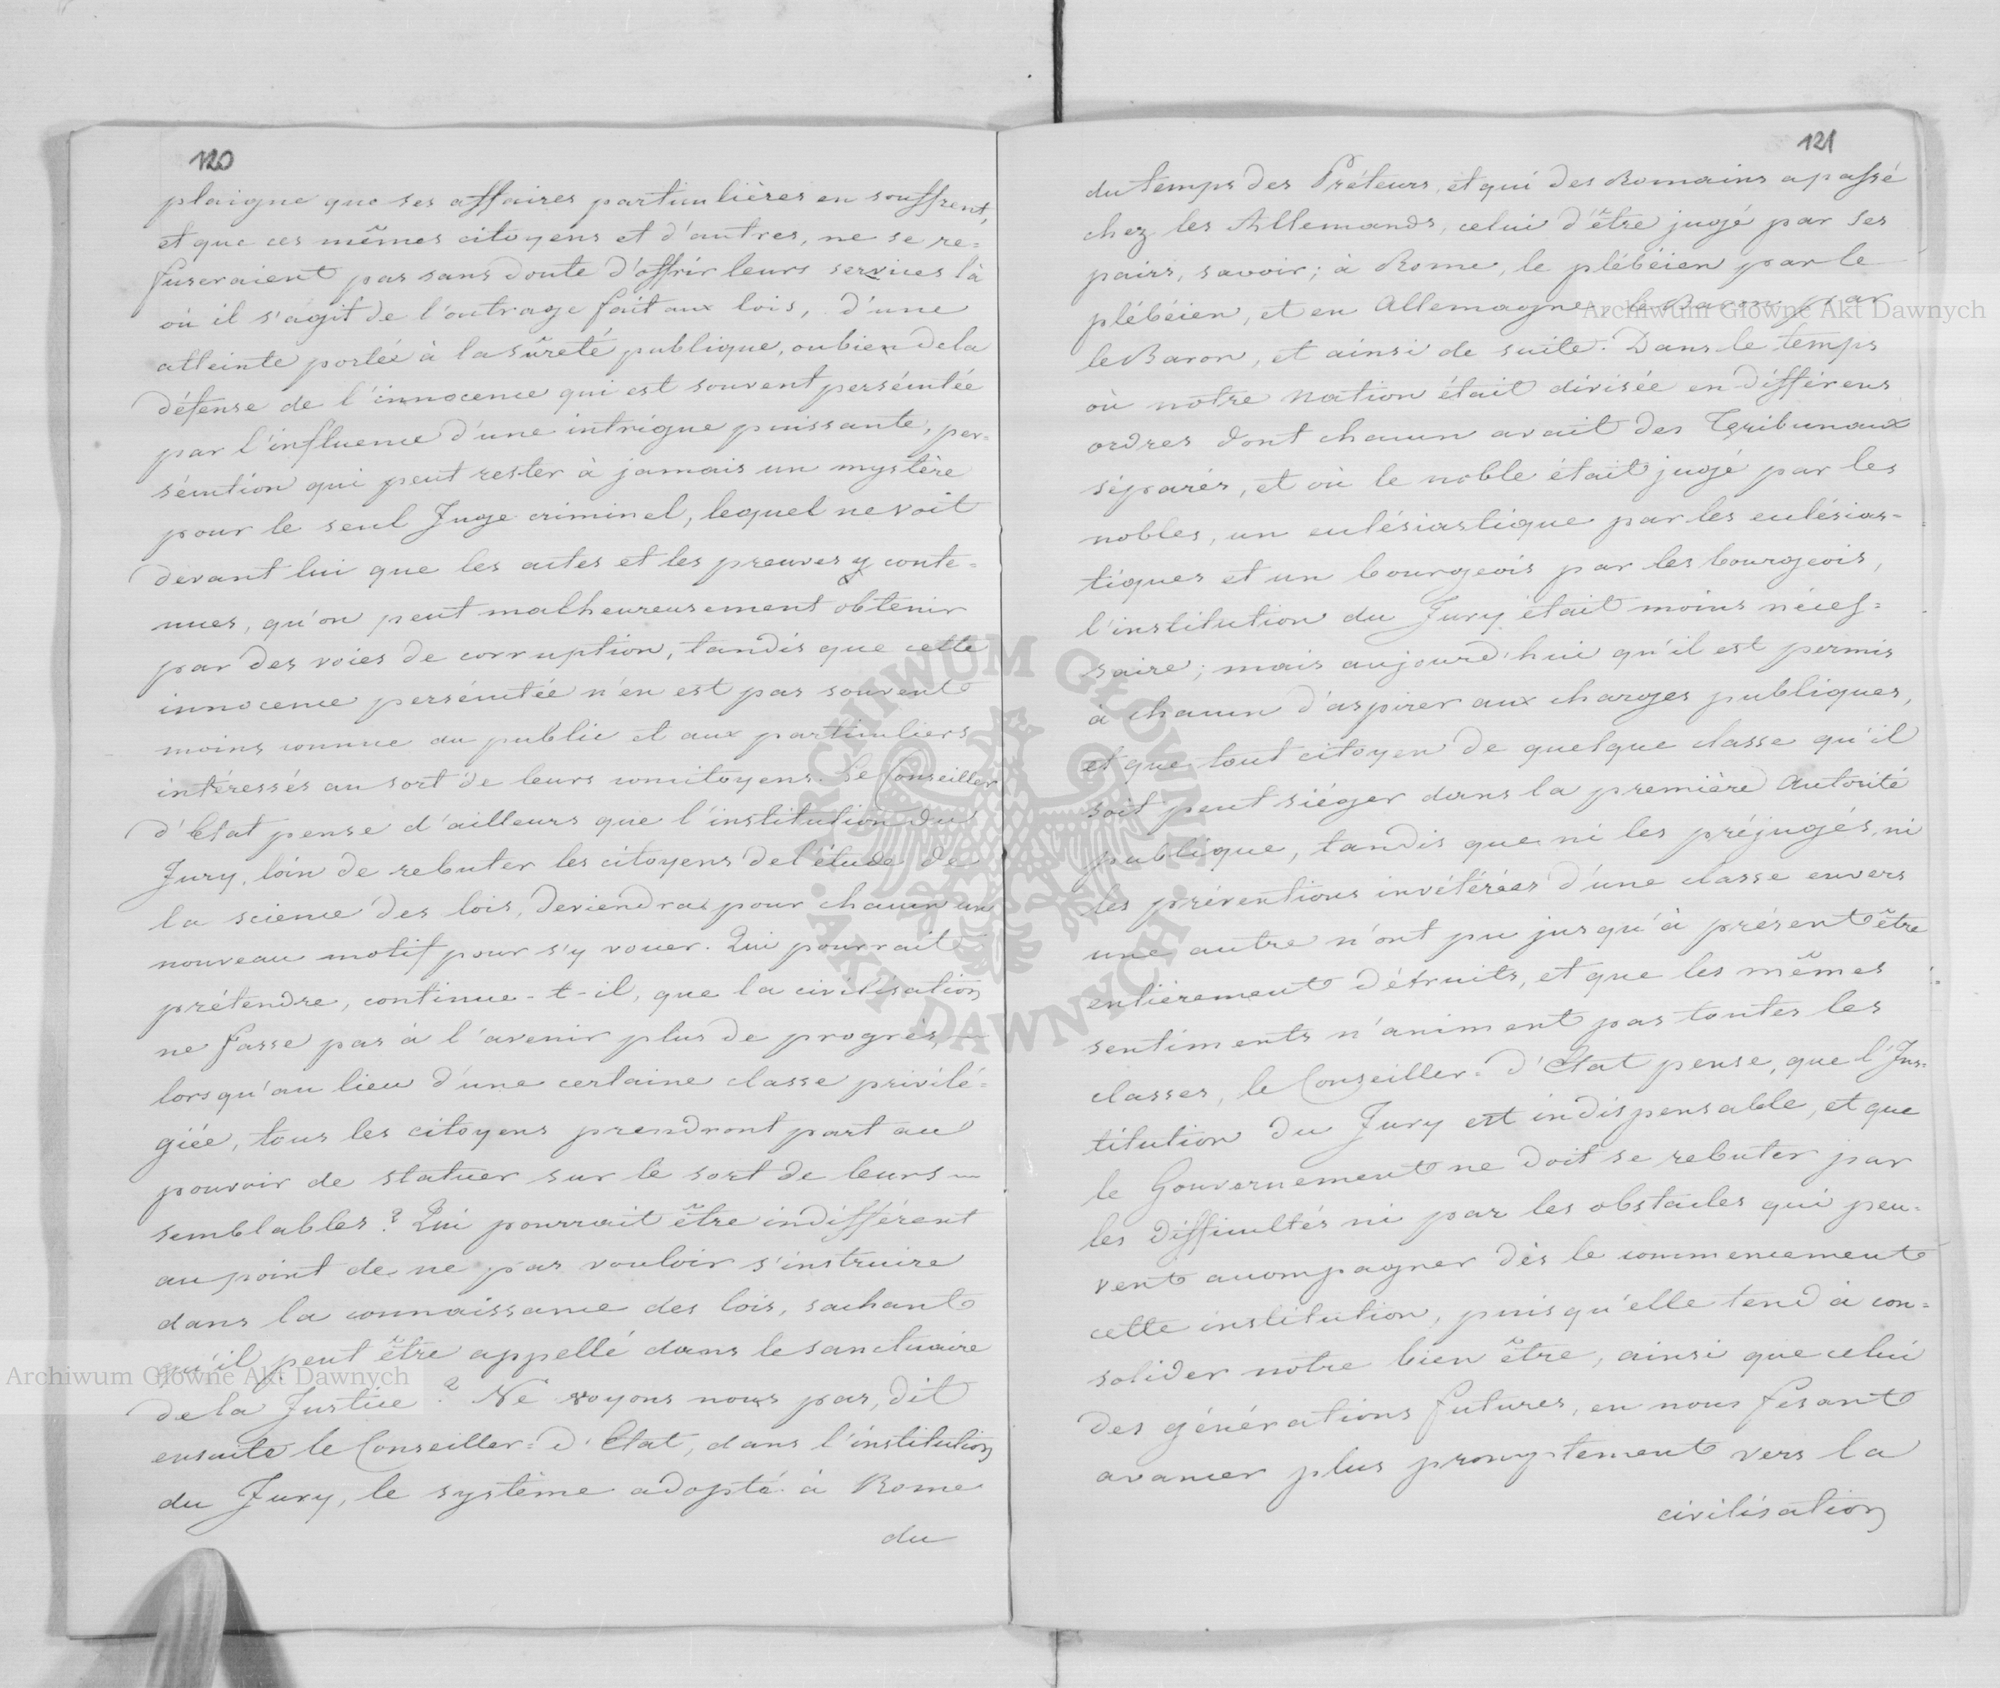 120
plaigne que ses affaires particulières en souffrent,
et que ces mêmes citoyens et d'autres, ne se re=
fuseraient pas sans doute d'offrir leurs services là
où il s'agit de l'outrage fait aux lois, d'une
atteinte portée à la sûreté publique, ou bien de la
défense de l'innocence qui est souvent persécutée
par l'influence d'une intrigue puissante, per=
sécution qui peut rester à jamais un mystère
pour le seul Juge criminel, lequel ne voit
devant lui que les actes et les preuves y conte=
nues, qu'on peut malheureusement obtenir
par des voies de corruption, tandis que cette
innocence persécutée n'en est pas souvent
moins connue au public et aux particuliers
intéressés au sort de leurs concitoyens. Le Conseiller
d'Etat pense d'ailleurs que l'institution du
Jury, loin de rebuter les citoyens de l'étude de
la science des lois, deviendrai pour chacun un
nouveau motif pour s'y vouer. Qui pourrait
prétendre, continue-t-il, que la civilisation
ne fasse pas à l'avenir plus de progrès, —
lorsqu'au lieu d'une certaine classe privilé=
giée, tous les citoyens prendront part au
pouvoir de statuer sur le sort de leurs —
semblables? Qui pourrait être indifférent
au point de ne pas vouloir s'instruire
dans la connaissance des lois, sachant
qu'il peut être appellé dans le sanctuaire
de la Justice? Ne voyons nous pas, dit
ensuite le Conseiller=d'Etat, dans l'institution
du Jury, le système adopté à Rome
du
121
du temps des Préteurs, et qui des Romains a passé
chez les Allemands, celui d'être jugé par ses
pairs, savoir; à Rome, le plébéien par le
plébéien, et en Allemagne le Baron par
le Baron, et ainsi de suite. Dans le temps
où notre Nation était divisée en différens
ordres dont chacun avait des Tribunaux
séparés, et où le noble était jugé par les
nobles, un eclésiastique par les eclésias-
tiques et un bourgeois par les bourgeois,
l'institution du Jury était moins néces=
saire; mais aujourd'hui qu'il est permis
à chacun d'aspirer aux charges publiques,
et que tout citoyen de quelque classe qu'il
soit peut siéger dans la première Autorité
publique, tandis que ni les préjugés, ni
les préventions invétérées d'une classe envers
une autre n'ont pu jusqu'à présent être
entièrement détruits, et que les mêmes
sentiments n'animent pas toutes les
classes, le Conseiller=d'Etat pense, que l'Ins=
titution du Jury est indispensable, et que
le Gouvernement ne doit se rebuter par
les difficultés ni par les obstacles qui peu=
vent accompagner dès le commencement
cette institution, puisqu'elle tend à con=
solider notre bien être, ainsi que celui
des générations futures, en nous fesant
avancer plus promptement vers la
civilisation
Archiwum Główne Akt Dawnych
Archiwum Główne Akt Dawnych
ARCHIWUM GŁÓWNE AKT DAWNYCH